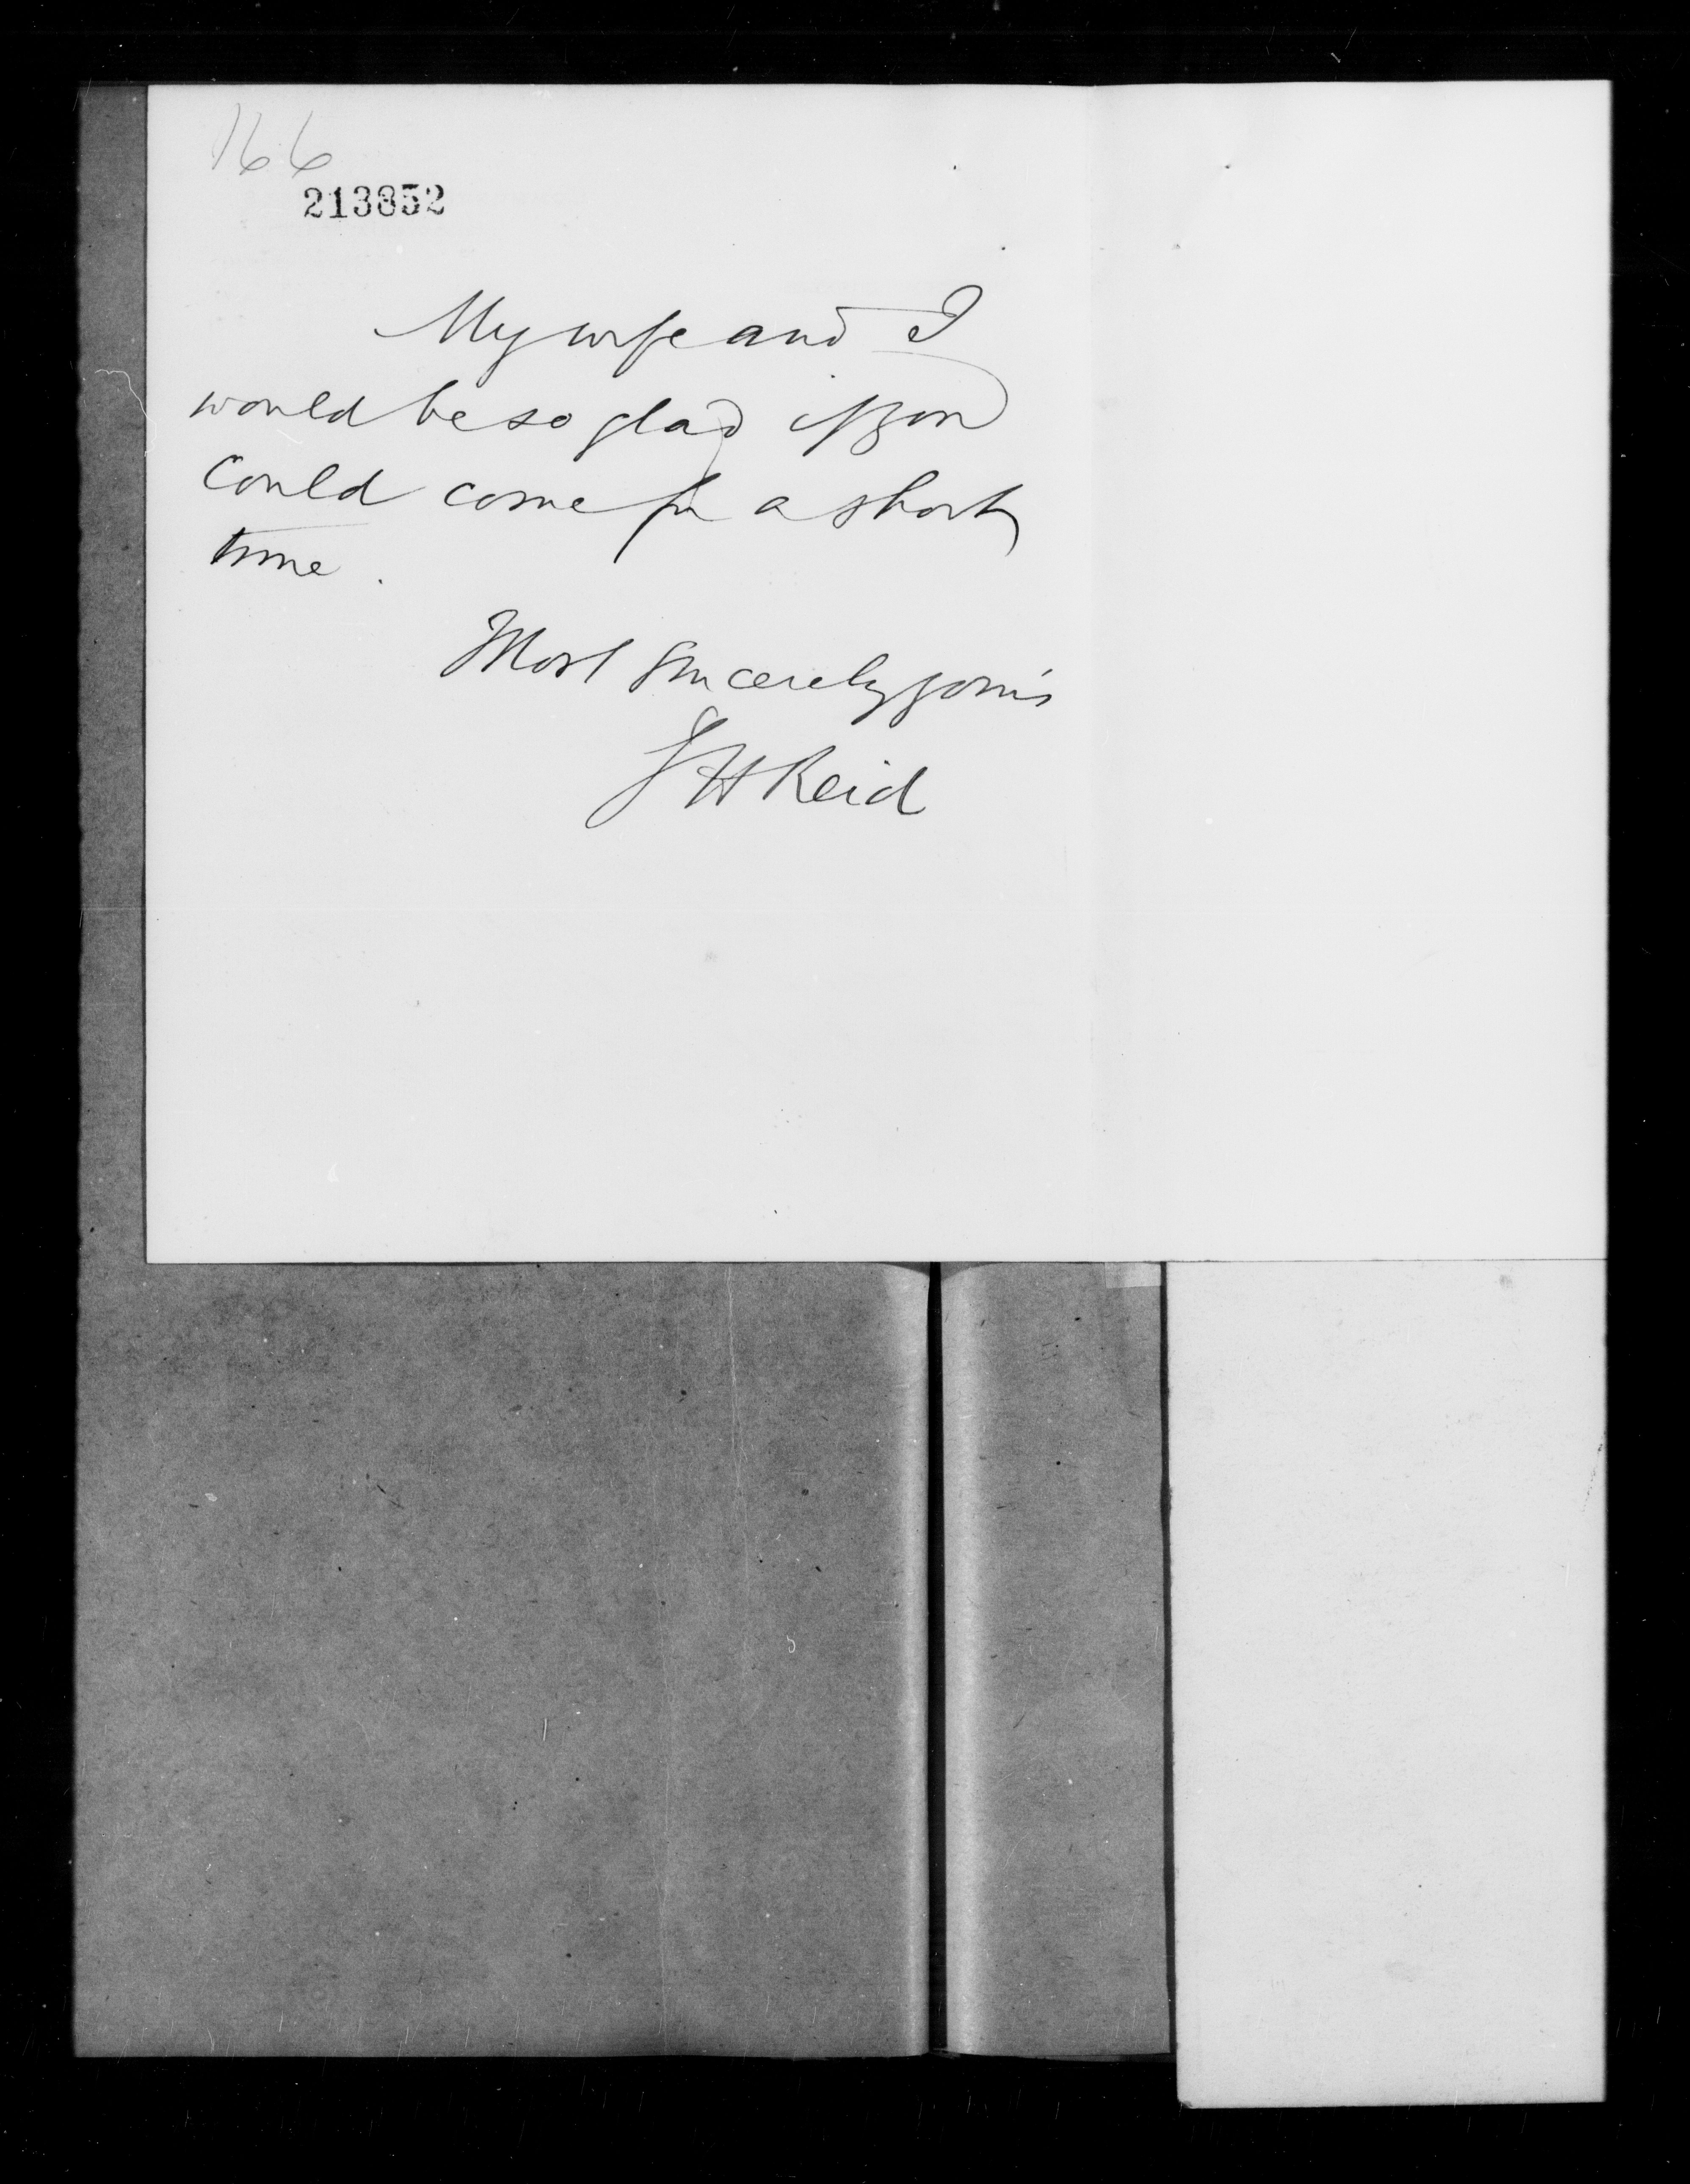 166
213852
My wife and I
would be so glad if you
could come for a short
time.
Most sincerely yours
J H Reid